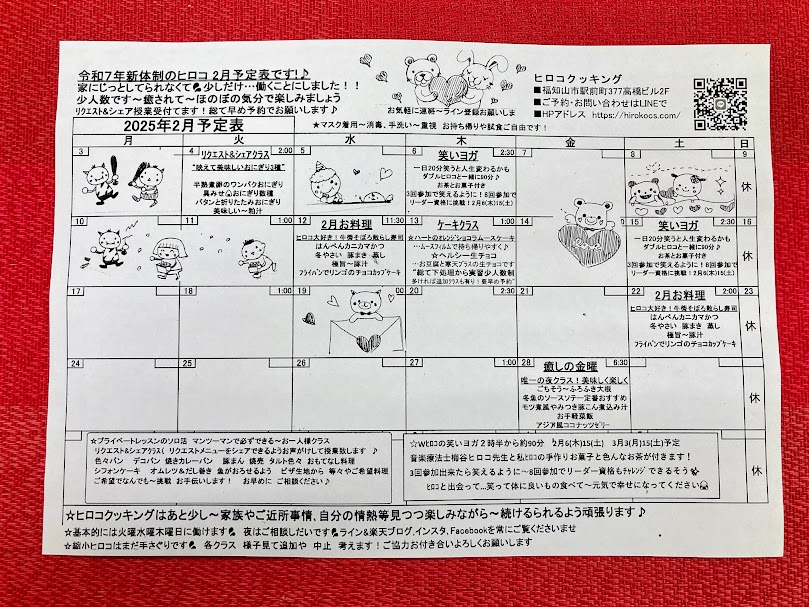 令和7年新体制のヒロコ 2月予定表です!♪
家にじっとしてられなくて 少しだけ…働くことにしました!!
少人数です~癒されて~ほのぼの気分で楽しみましょう
リクエスト&シェア授業受付ます!総て早め予約でお願いします!
お気軽に連絡~ライン登録お願いしま
ヒロコクッキング
■福知山市駅前町377高橋ビル2F
■ご予約・お問い合わせはLINEで
■HPアドレス https://hirokocs.com/
2025年2月予定表
★マスク着用~消毒、手洗い~重視 お持ち帰りや試食に自由です!
月 火 水 木 金 土 日
3
4 リクエスト&シェアクラス 2:00
"映えて美味しいおにぎり3種"
半熟煮卵のワンパクおにぎり
具みせおにぎり数種
パタンと折りたたみおにぎり
美味しい~粕汁
5
6 笑いヨガ 2:00
一日20分笑うと人生変わるかも
ダブルヒロコと一緒に90分♪
お茶とお菓子付き
3回参加で笑えるように!8回参加で
リーダー資格に挑戦!2月6(木)15(土)
7
8
9
休
10
11 1:00
12 2月お料理 11:30
ヒロコ大好き!牛蒡そぼろ散らし寿司
はんぺんカニカマかつ
冬やさい 豚まき 蒸し
極旨~豚汁
フライパンでリンゴのチョコカップケーキ
13 ケーキクラス 1:00
☆ハートのオレンジショコラムースケーキ
~ムースフィルムで持ち帰りやすく♪
☆ヘルシー生チョコ
~お豆腐と寒天プラスの生チョコです
"総て下処理から実習少人数制
多ければ追加クラスも有り!要早め予約"
14
15 笑いヨガ 2:00
一日20分笑うと人生変わるかも
ダブルヒロコと一緒に90分♪
お茶とお菓子付き
3回参加で笑えるように!8回参加で
リーダー資格に挑戦!2月6(木)15(土)
16
休
17
18 1:00
19
20 2:30
21
22 2月お料理 1:00
ヒロコ大好き!牛蒡そぼろ散らし寿司
はんぺんカニカマかつ
冬やさい 豚まき 蒸し
極旨~豚汁
フライパンでリンゴのチョコカップケーキ
23
休
24
25
26
27 1:00
28 癒しの金曜 6:30
唯一の夜クラス!美味しく楽しく
ごちそう~ふろふき大根
冬魚のソースソテー定番おすすめ
モツ煮風やみつき豚こん煮込み汁
お手軽菜飯
アジア風ココナッツゼリー
休
☆プライベートレッスンのソロ活 マンツーマンで必ずできる~お一人様クラス
リクエスト&シェアクラス( リクエストメニューをシェアできるようお声がけして授業致します ♪
色々パン デコパン 焼きカレーパン 豚まん 焼売 タルト色々 おもてなし料理
シフォンケーキ オムレツ&だし巻き 魚がおろせるよう ピザ生地から 等々やご希望料理
ご希望でなんでも~挑戦 お手伝いします! お早めに ご相談ください♪
☆Wヒロの笑いヨガ2時半から約90分 2月6(木)15(土) 3月3(月)15(土)予定
音楽療法士梅谷ヒロコ先生と私ヒロコの手作りお菓子と色んなお茶が付きます!
3回参加出来たら笑えるように~8回参加でリーダー資格もチャレンジできるそう
ヒロコと出会って…笑って体に良いもの食べて~元気で幸せになってください
休
☆ヒロコクッキングはあと少し~家族やご近所事情、自分の情熱等見つつ楽しみながら~続けられるよう頑張ります♪
☆基本的には火曜水曜木曜日に働けます 夜はご相談しだいです ライン&楽天ブログ、インスタ、Facebookを常にご覧くださいませ
☆縮小ヒロコはまだ手さぐりです 各クラス 様子見て追加や 中止 考えます!ご協力お付き合いよろしくお願いします